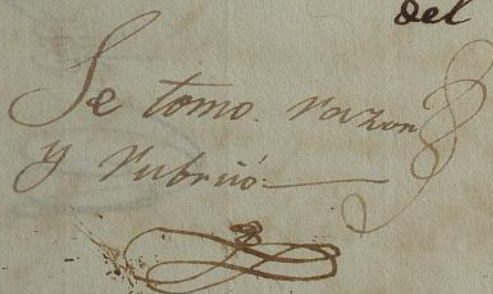 del
Se tomo. razon
y rubricó.